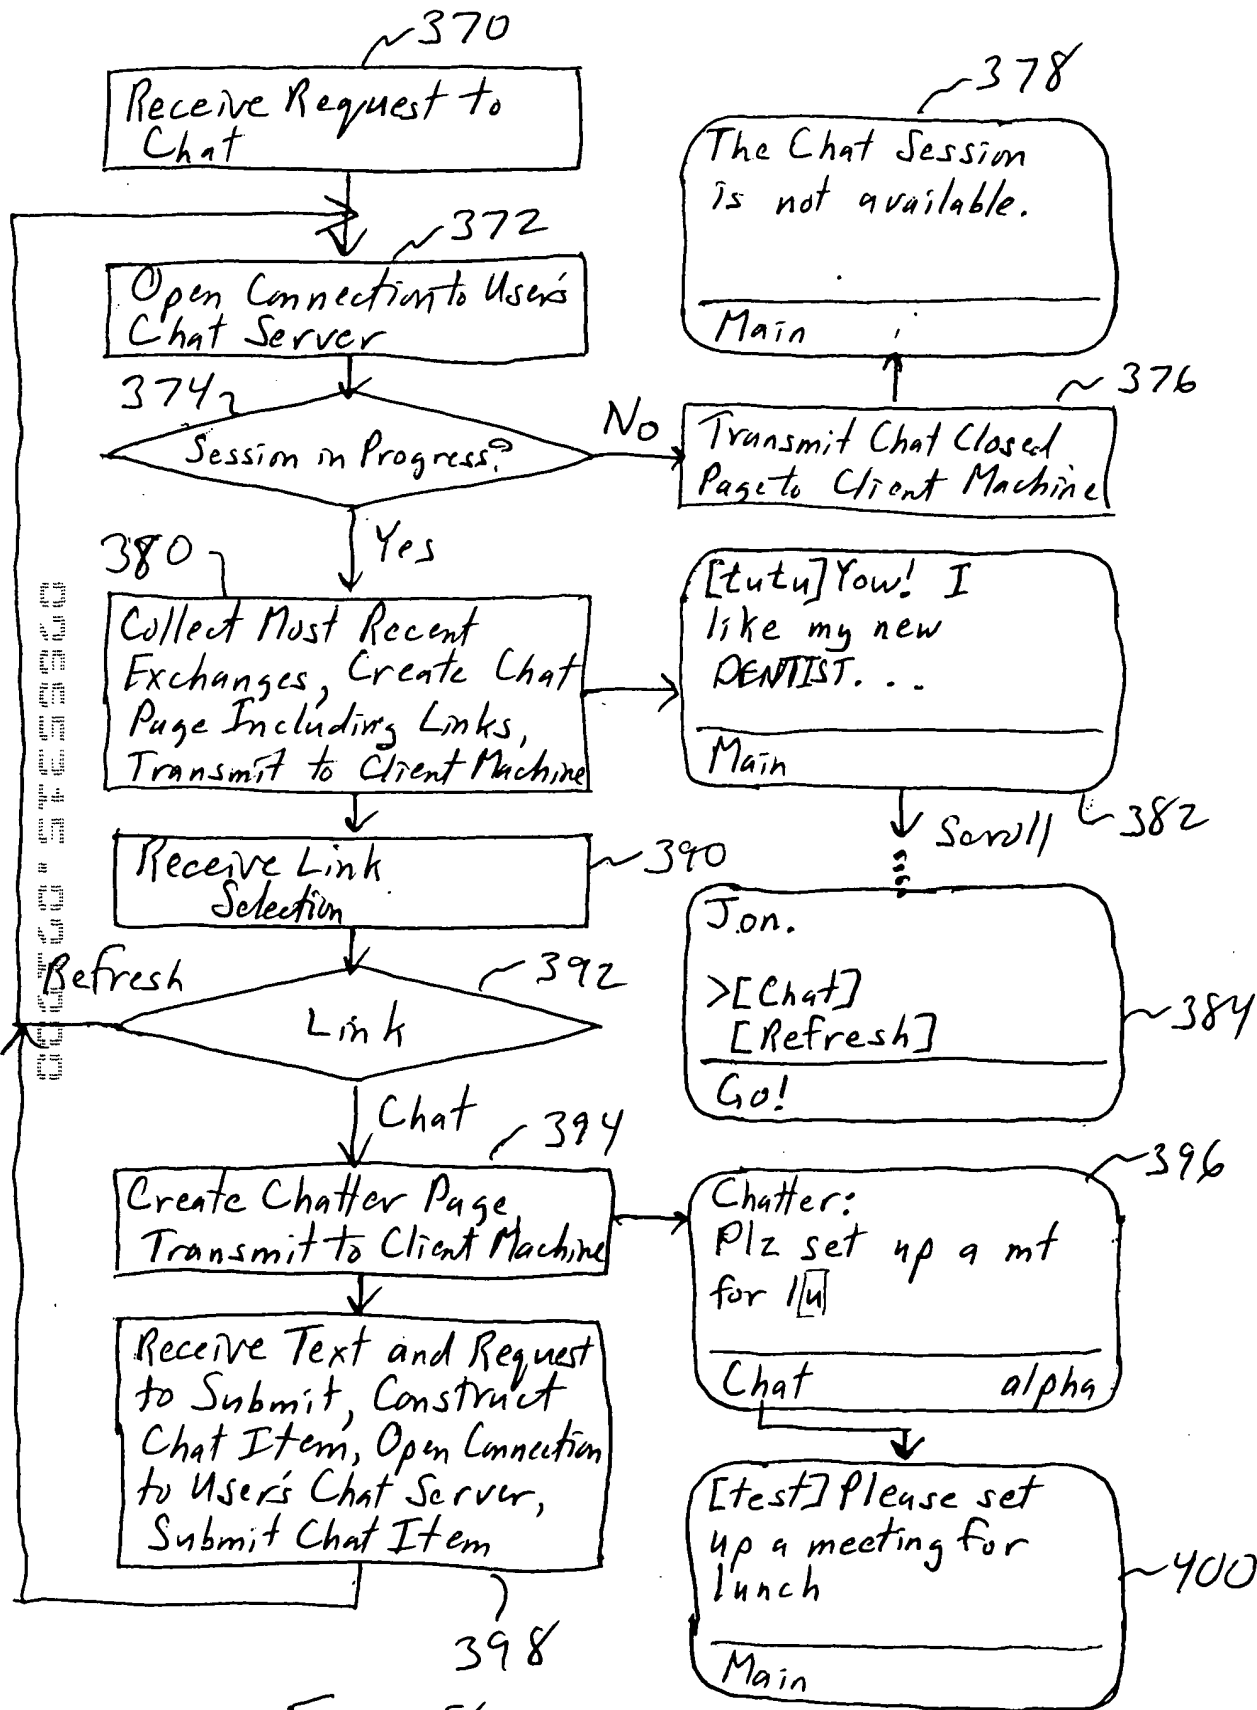 370
Receive Request to
Chat
378
The Chat Session
is not available.
Main
372
Open Connection to User's
Chat Server
374
Session in Progress?
No
376
Transmit Chat Closed
Page to Client Machine
Yes
380
Collect Most Recent
Exchanges, Create Chat
Page Including Links,
Transmit to Client Machine
[tutu] Yow! I
like my new
DENTIST...
Main
382
Scroll
Receive Link
Selection
390
Jon.
>[Chat]
[Refresh]
Go!
384
Refresh
392
Link
Chat
394
Create Chatter Page
Transmit to Client Machine
396
Chatter:
Plz set up a mt
for lu
Chat alpha
Receive Text and Request
to Submit, Construct
Chat Item, Open Connection
to User's Chat Server,
Submit Chat Item
398
[test] Please set
up a meeting for
lunch
Main
400